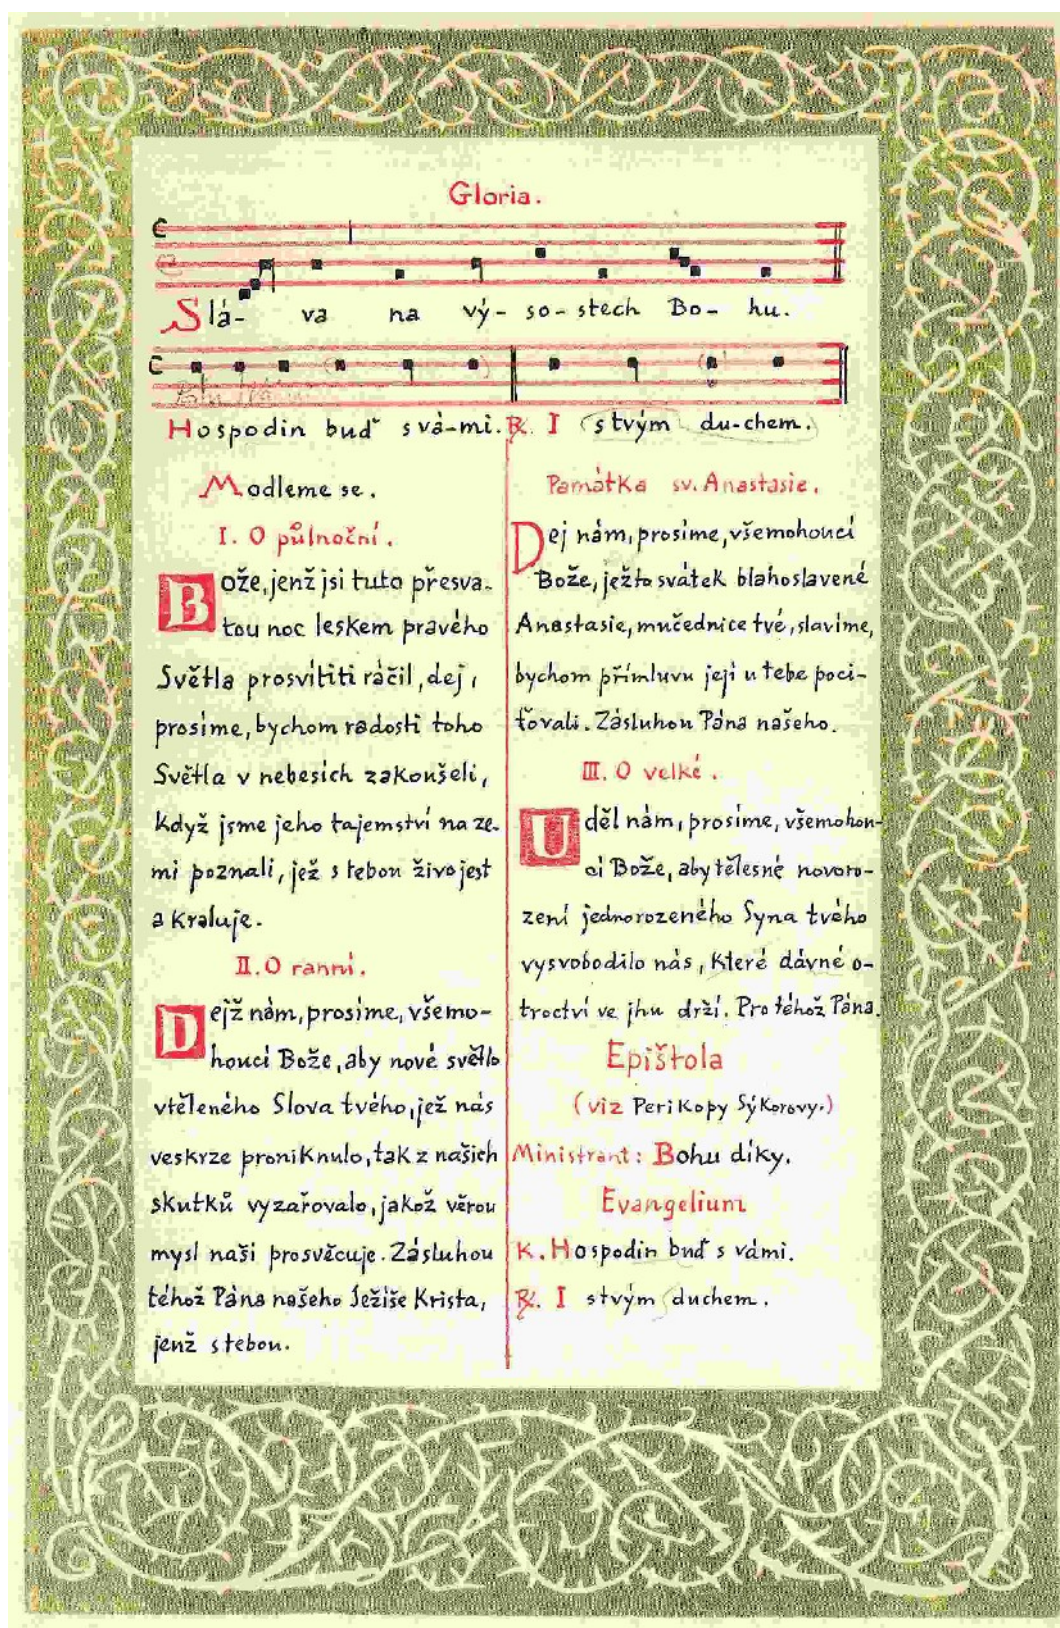 Gloria.
Slá- va na vý- so- stech Bo- hu.
Hospodin buď s vá-mi. ℟. I s tvým du-chem.
Modleme se.
I. O půlnoční.
Bože, jenž jsi tuto přesva-
tou noc leskem pravého
Světla prosvítiti ráčil, dej,
prosíme, bychom radosti toho
Světla v nebesích zakoušeli,
když jsme jeho tajemství na ze-
mi poznali, jež s tebou živ jest
a kraluje.
II. O ranní.
Dejž nám, prosíme, všemo-
houcí Bože, aby nové světlo
vtěleného Slova tvého, jež nás
veskrze proniknulo, tak z našich
skutků vyzařovalo, jakož věrou
mysl naši prosvěcuje. Zásluhou
téhož Pána našeho Ježíše Krista,
jenž s tebou.
Památka sv. Anastasie.
Dej nám, prosíme, všemohoucí
Bože, ježto svátek blahoslavené
Anastasie, mučednice tvé, slavíme,
bychom přímluvu její u tebe poci-
ťovali. Zásluhou Pána našeho.
III. O velké.
Uděl nám, prosíme, všemohou-
cí Bože, aby tělesné novoro-
zení jednorozeného Syna tvého
vysvobodilo nás, které dávné o-
troctví ve jhu drží. Pro téhož Pána.
Epištola
(viz Perikopy Sýkorovy.)
Ministrant: Bohu díky.
Evangelium
K. Hospodin buď s vámi.
℟. I s tvým duchem.